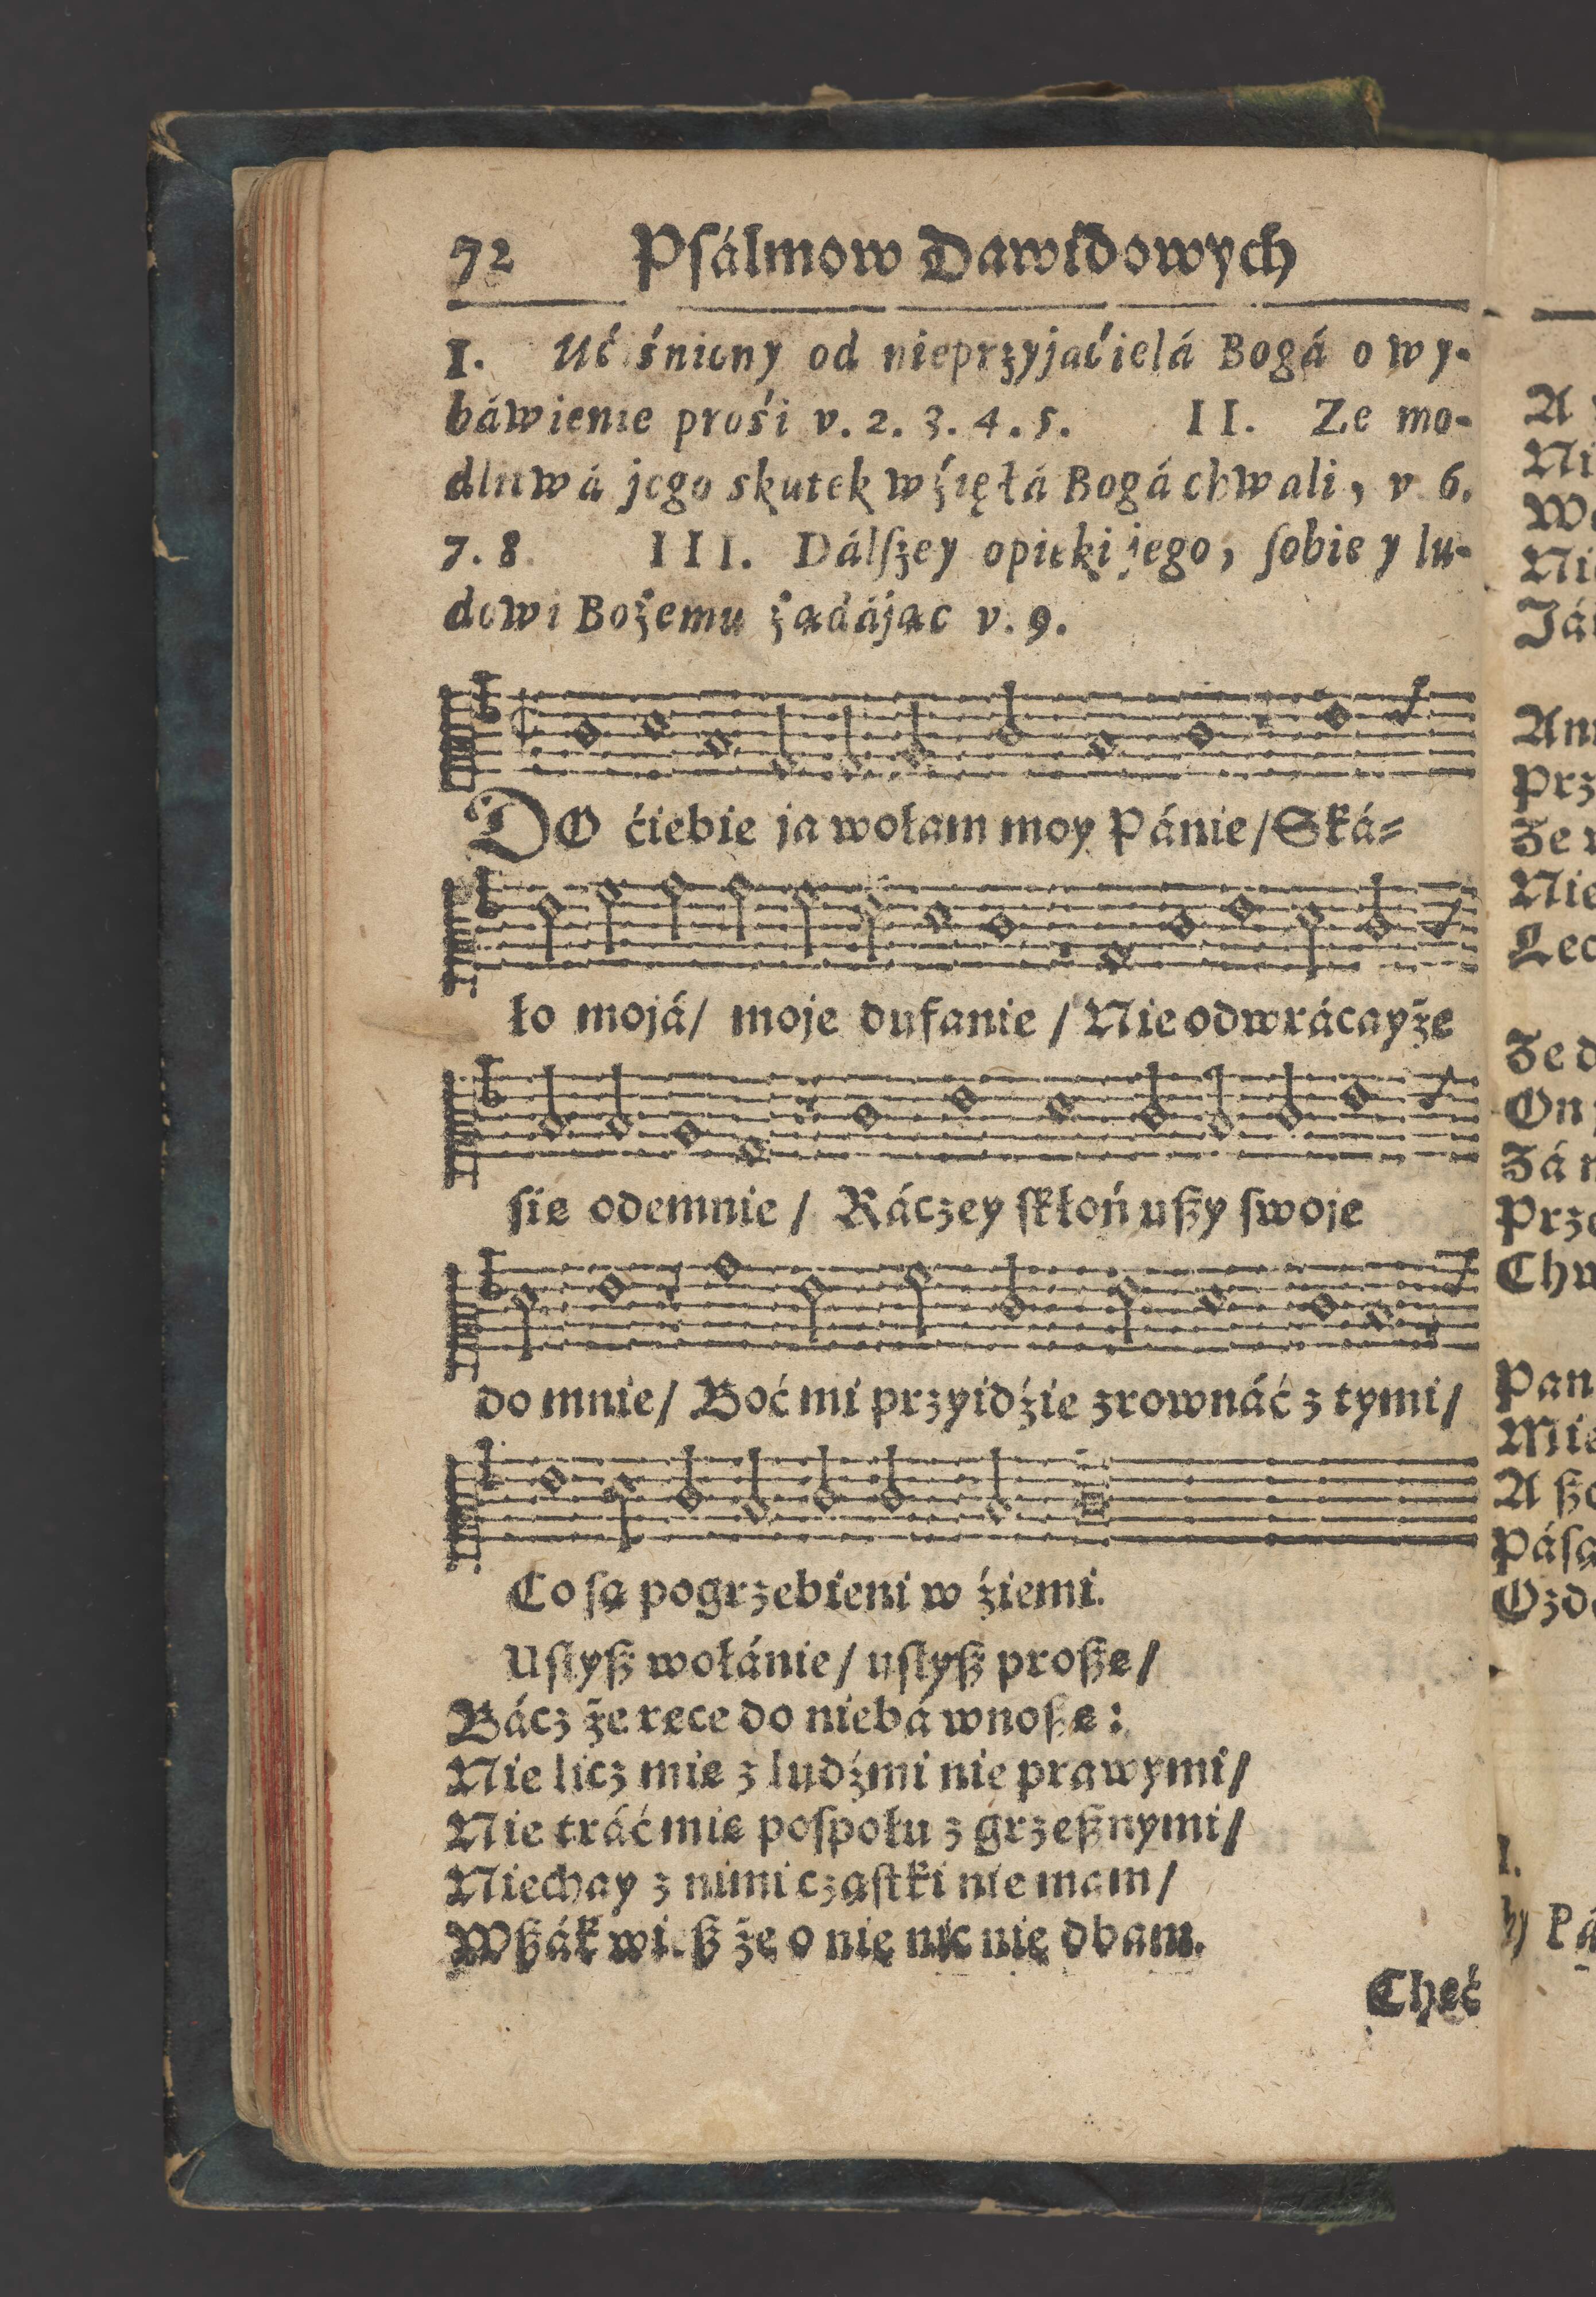 72 Psálmow Dawidowych
I. Ućiśniony od nieprzyjaćielá Bogá o wy-
báwienie prośi v. 2. 3. 4. 5. II. Ze mo-
dlitwá jego skutek wźięłá Bogá chwali, v. 6.
7. 8. III. Dálſzey opieki jego, ſobie y lu-
dowi Bożemu żądájąc v. 9.
DO ćiebie ja wołam moy Pánie/ Ská-
ło mojá/ moje dufanie / Nie odwrácayże
ſię odemnie / Ráczey ſkłoń uſzy ſwoje
do mnie/ Boć mi przyidźie zrownáć z tymi/
Co ſą pogrzebieni w źiemi.
Uſłyſz wołánie/ uſłyſz proſzę/
Bácz że ręce do niebá wnoſzę:
Nie licz mię z ludźmi nie prawymi/
Nie tráć mię poſpołu z grzeſznymi/
Niechay z nimi cząſtki nie mam/
Wſzák wieſz że o nię nic nie dbam.
Chęć
A
Ni
We
Ni
Já
An
Prz
Że
Nie
Lec
Że
On
Zá
Prze
Chw
Pan
Mie
A ſzc
Páſą
Ozdo
I.
by Pá